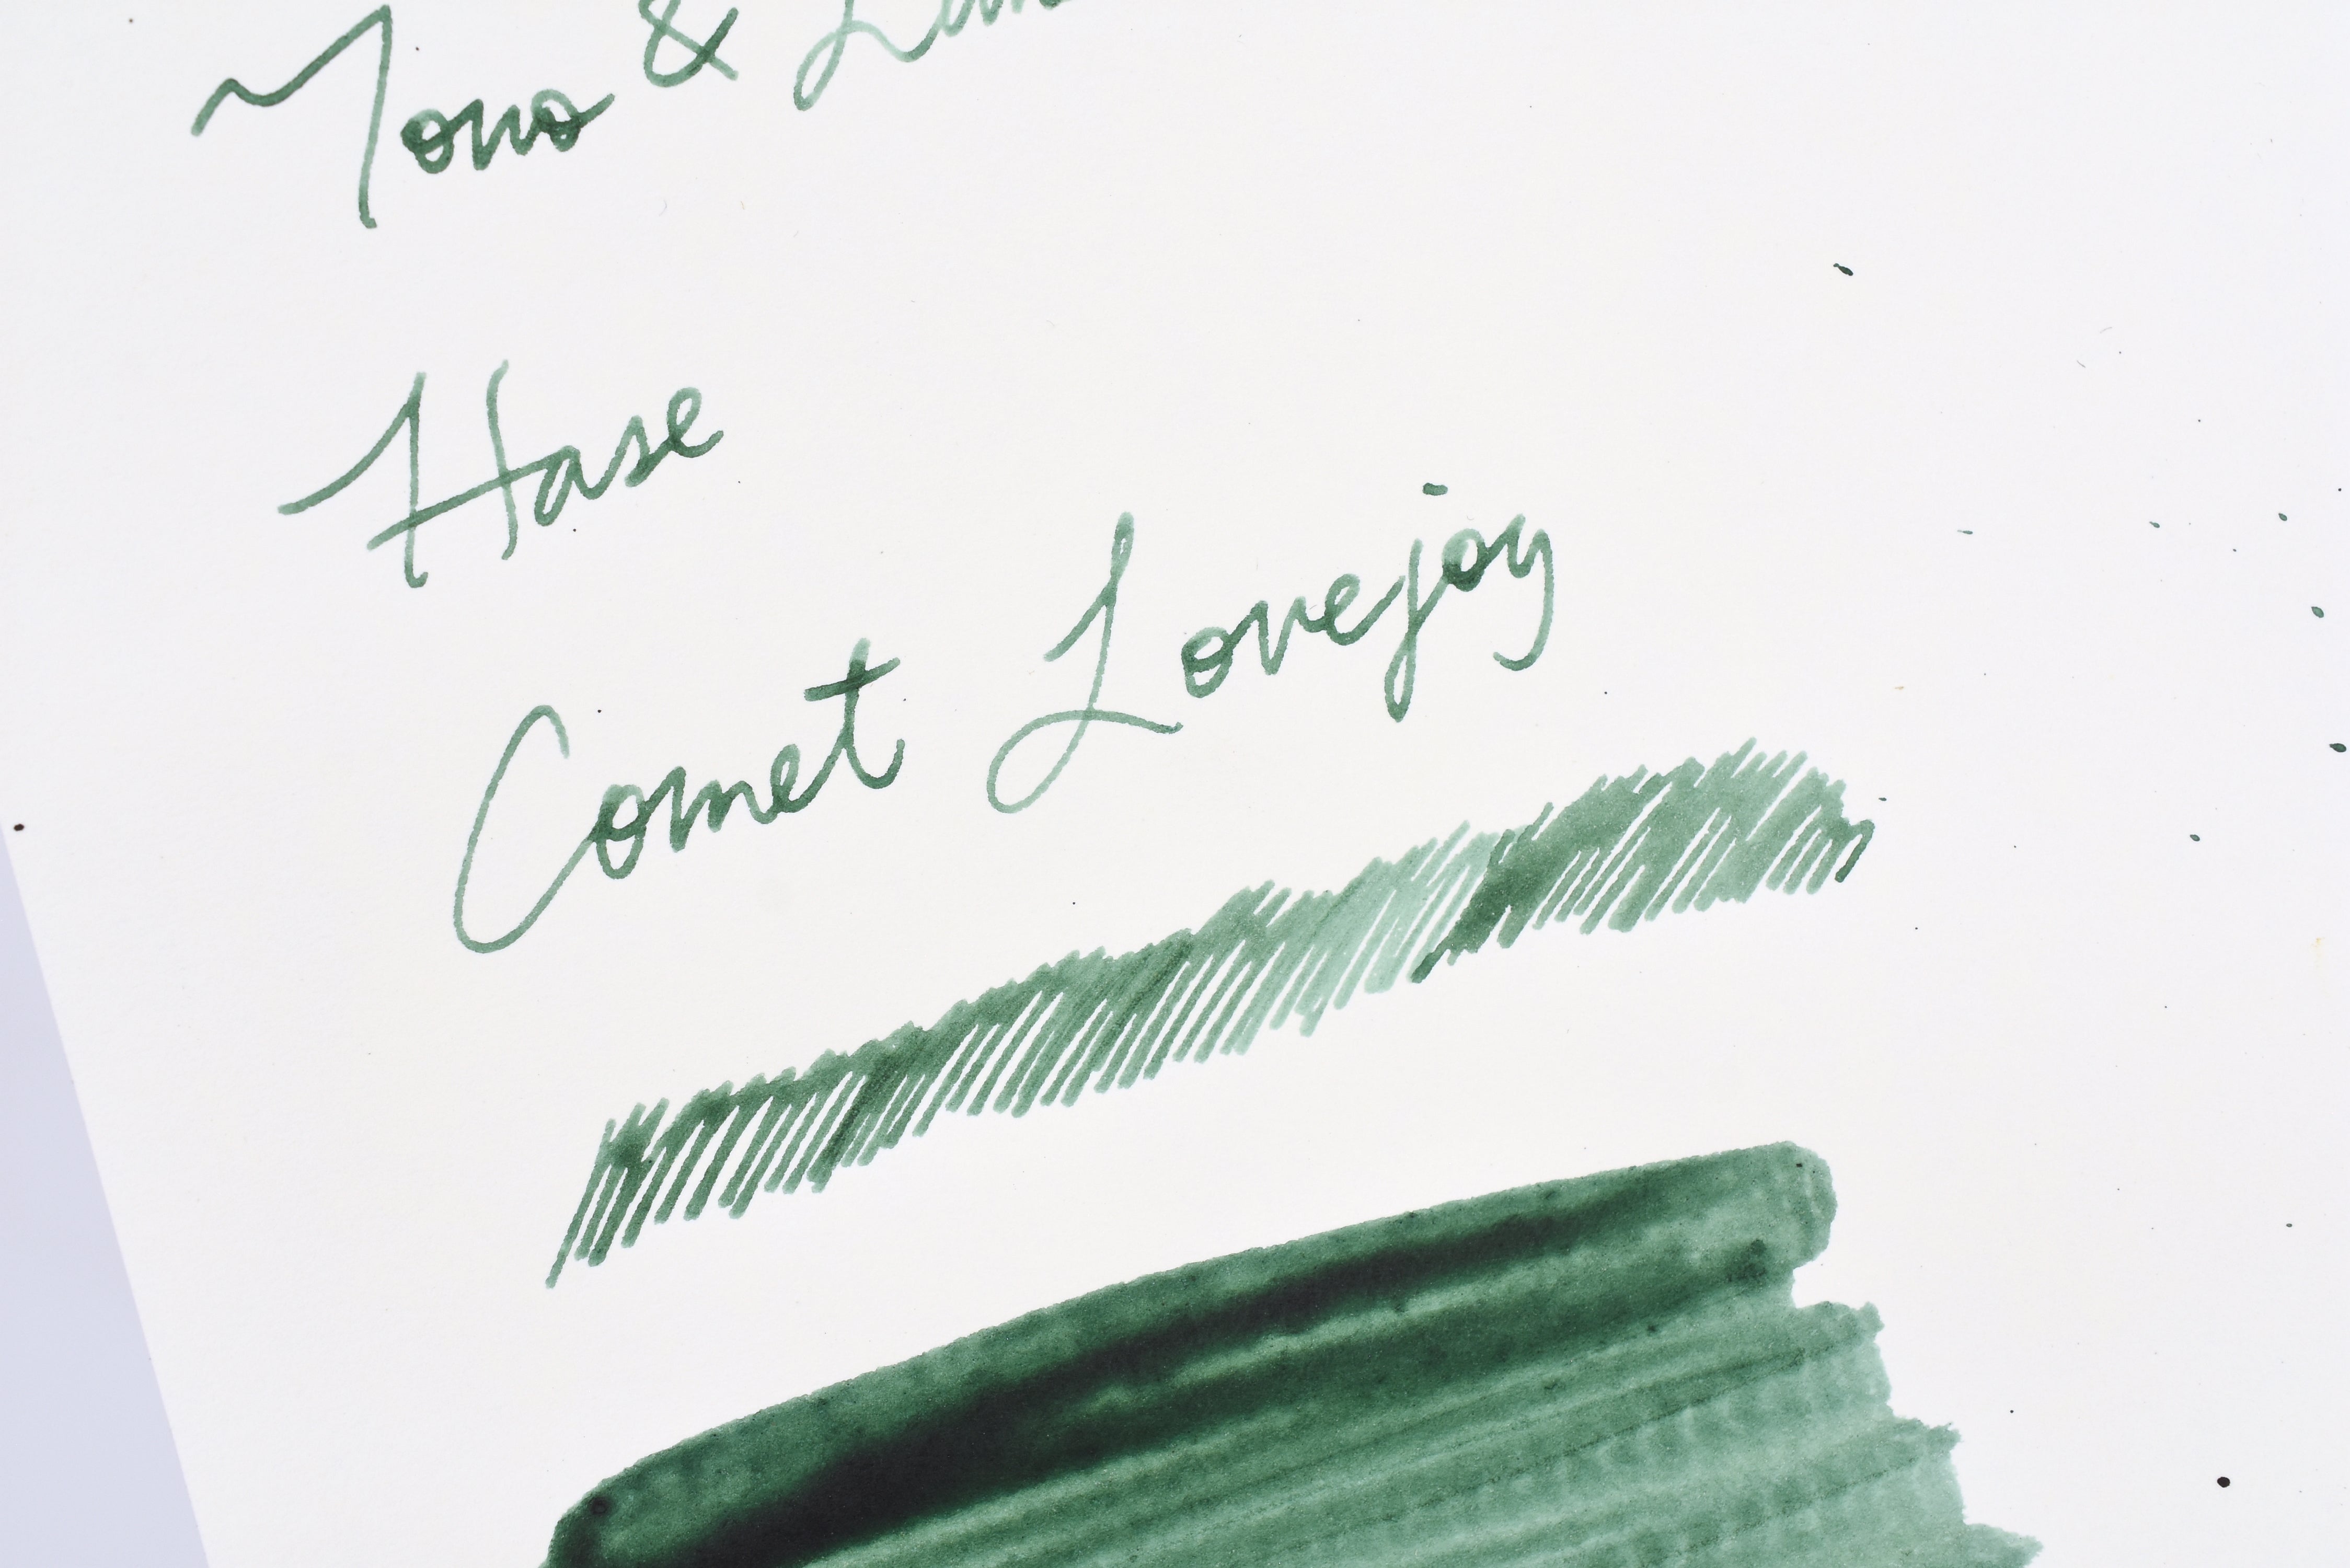 Tono &
Hase
Comet Lovejoy